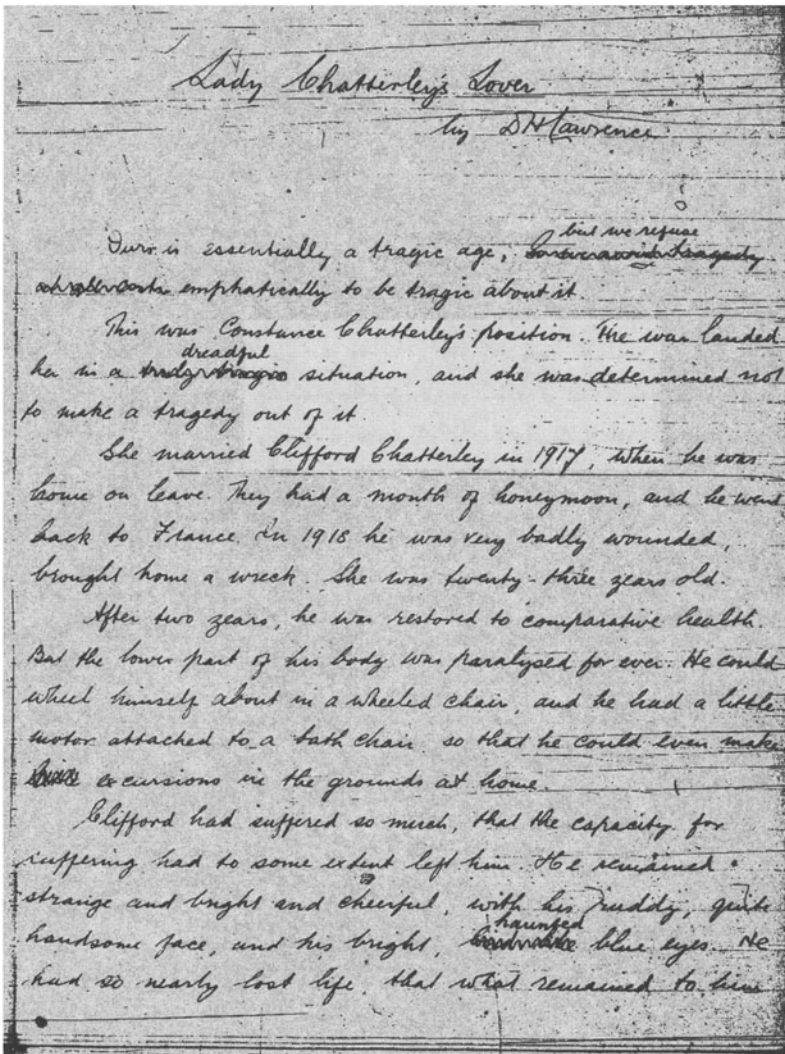 Lady Chatterley's Lover
by D H Lawrence
but we refuse
Ours is essentially a tragic age,
emphatically to be tragic about it.
This was Constance Chatterley's position. The war landed
dreadful
her in a truly tragic situation, and she was determined not
to make a tragedy out of it.
She married Clifford Chatterley in 1917, when he was
home on leave. They had a month of honeymoon, and he went
back to France. In 1918 he was very badly wounded,
brought home a wreck. She was twenty-three years old.
After two years, he was restored to comparative health.
But the lower part of his body was paralysed for ever. He could
wheel himself about in a wheeled chair, and he had a little
motor attached to a bath chair, so that he could even make
excursions in the grounds at home.
Clifford had suffered so much, that the capacity for
suffering had to some extent left him. He remained
strange and bright and cheerful, with his ruddy, quite
haunted
handsome face, and his bright, blue eyes. He
had so nearly lost life, that what remained to him